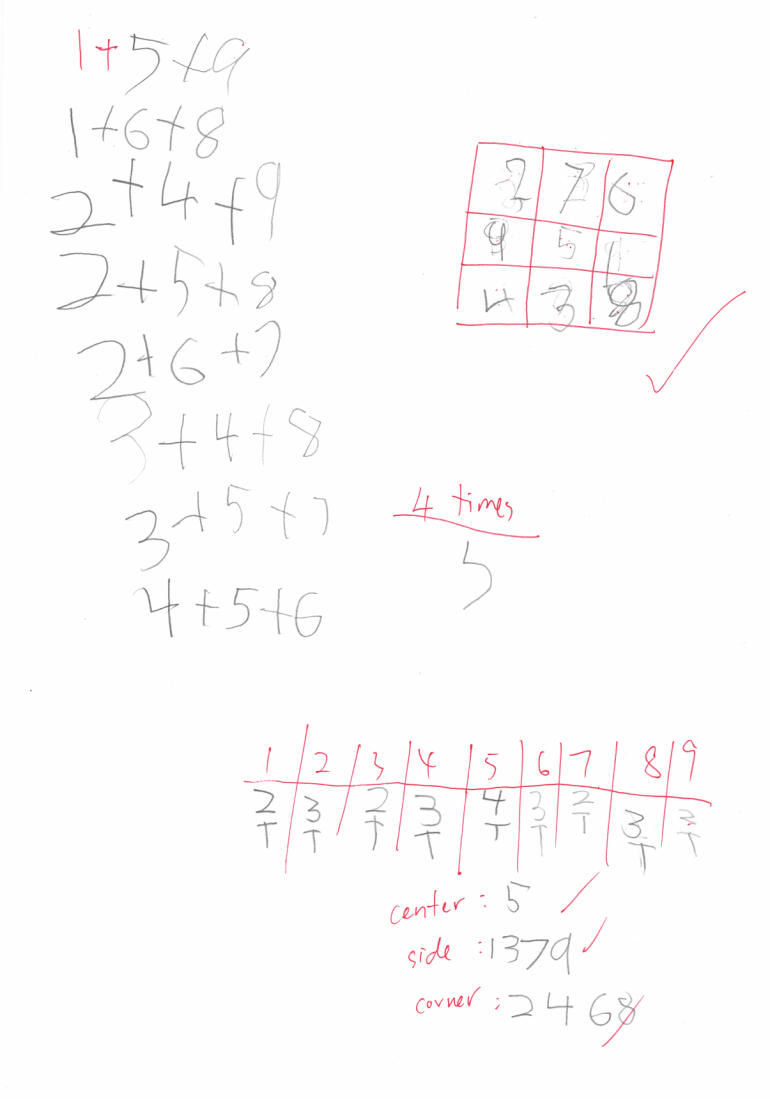 1+5+9
1+6+8
2+4+9
2+5+8
2+6+7
3+4+8
3+5+7
4+5+6
2 7 6
9 5 1
4 3 8
4 times
5
1 2 3 4 5 6 7 8 9
2 3 2 3 4 3 2 3
T T T T T T T T T
center : 5
side : 1379
corner : 2468